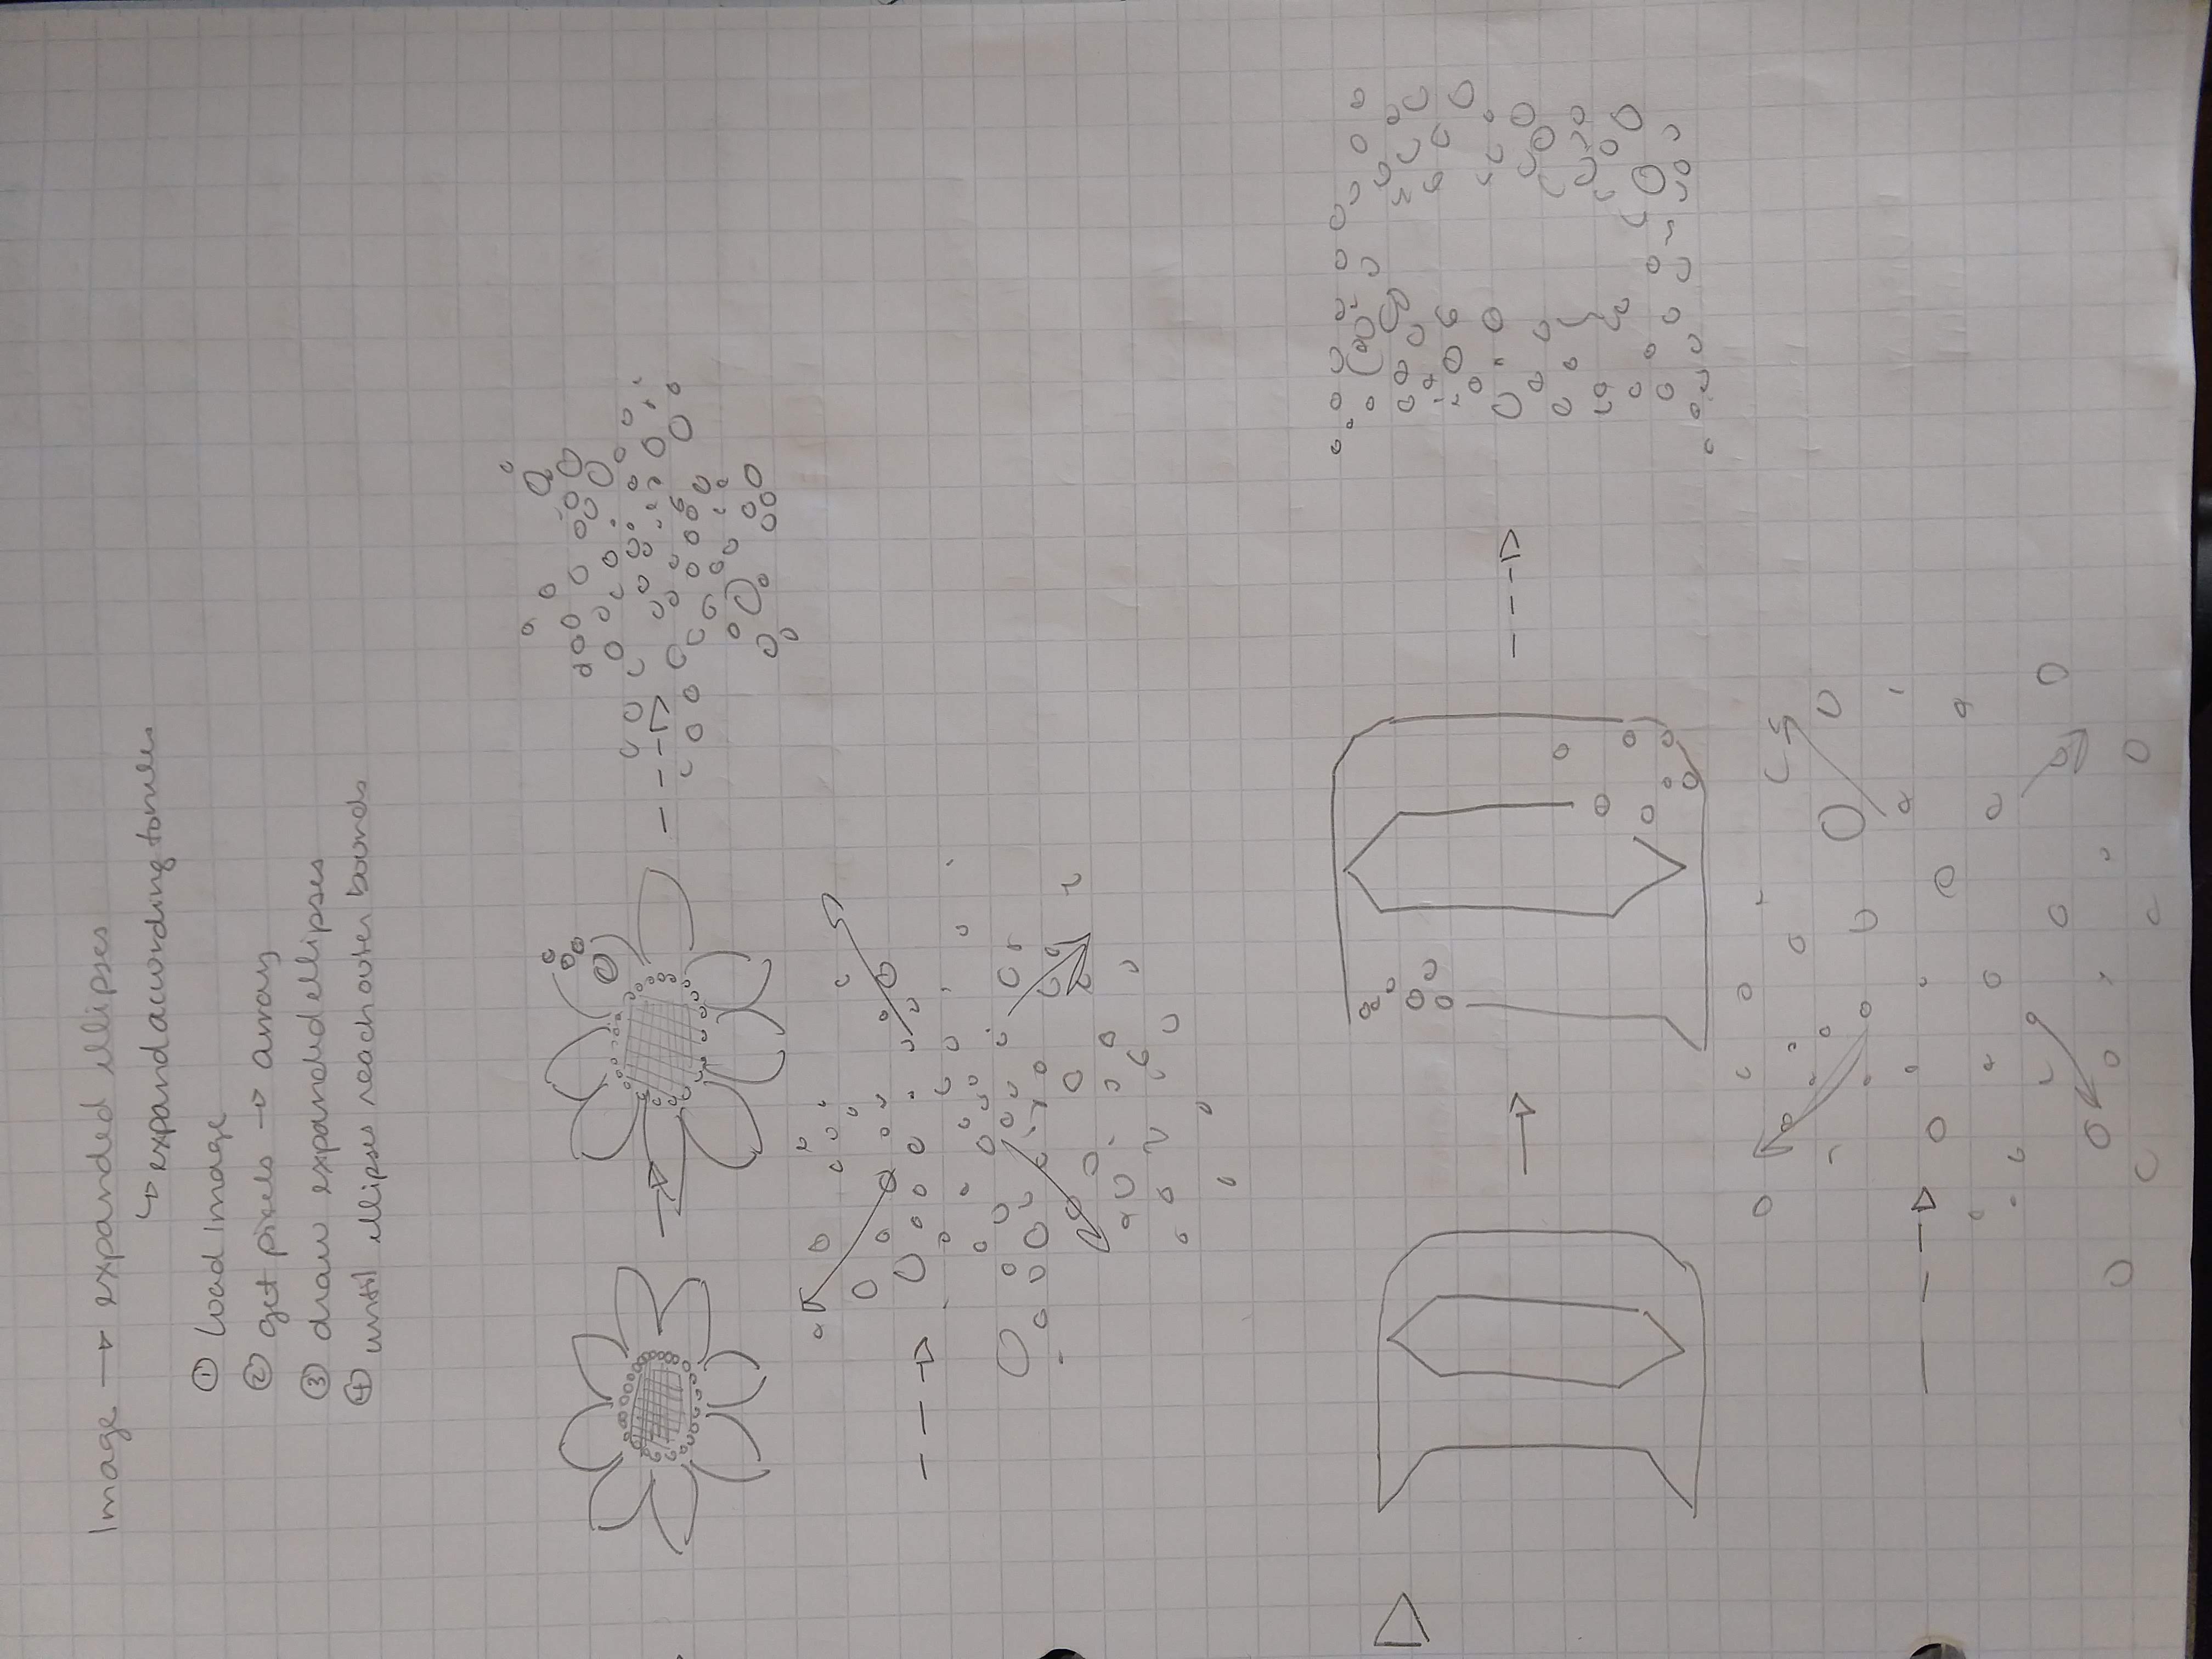 Image → expanded ellipses
↳ expand according to rules
① load Image
② get pixels → array
③ draw expanded ellipses
④ until ellipses reach outer bounds